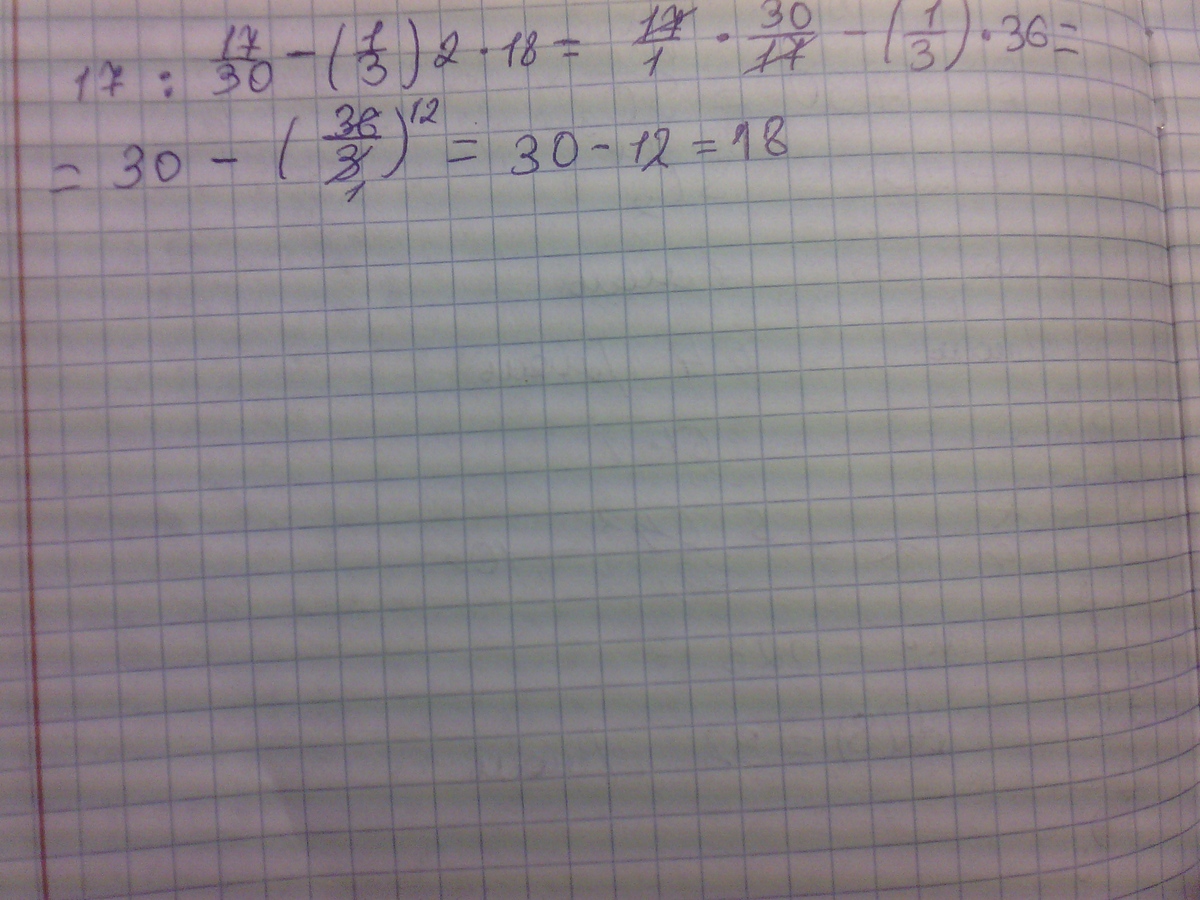 17 : 17/30 - (1/3) 2 · 18 = 17/1 · 30/17 - (1/3) · 36 =
= 30 - (36/3 1)12 = 30 - 12 = 18